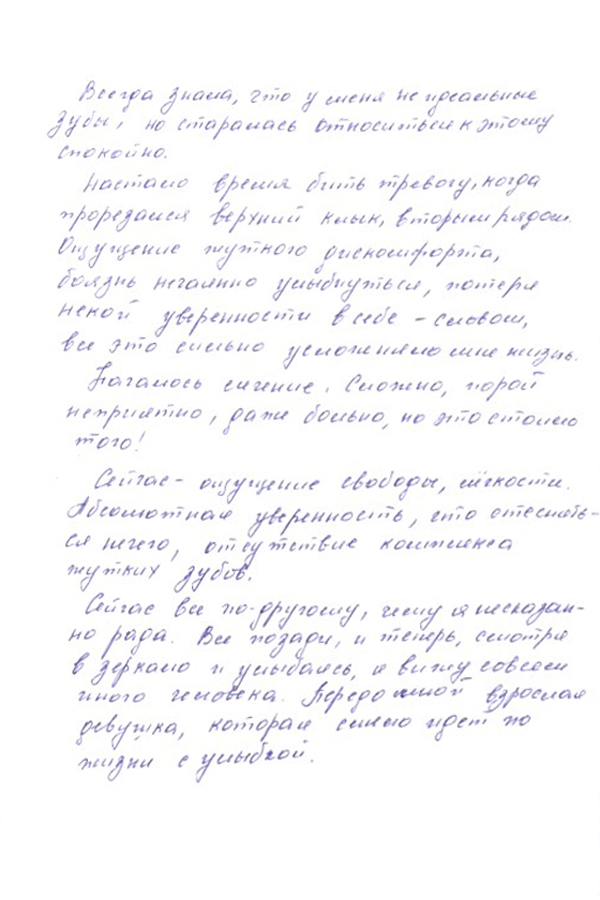 Всегда знала, что у меня не идеальные
зубы, но старалась относиться к этому
спокойно.
Настало время бить тревогу, когда
прорезался верхний клык, вторым рядом.
Ощущение жуткого дискомфорта,
боязнь нечаянно улыбнуться, потеря
некой уверенности в себе – словом,
все это сильно усложняло мне жизнь.
Началось лечение. Сложно, порой
неприятно, даже больно, но это стоило
того!
Сейчас – ощущение свободы, лёгкости.
Абсолютная уверенность, что стеснять-
ся нечего, отсутствие комплекса
жутких зубов.
Сейчас все по-другому, чему я несказан-
но рада. Все позади, и теперь, смотря
в зеркало и улыбаясь, я вижу совсем
иного человека. Передо мной взрослая
девушка, которая смело идет по
жизни с улыбкой.